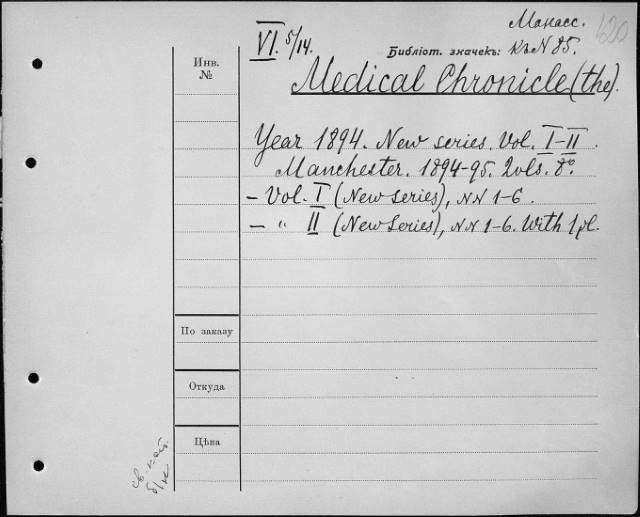 Манасс. 620
VI. 5/14. Библіот. значекъ: къ N 85.
Инв. №
Medical Chronicle (the).
Year 1894. New series. Vol. I-II.
Manchester. 1894-95. 2 vols. 8°.
- Vol. I (New series), NN 1-6.
- " II (New Series), NN 1-6. With 1 pl.
По заказу
Откуда
Цѣна
св. кат.
б/к